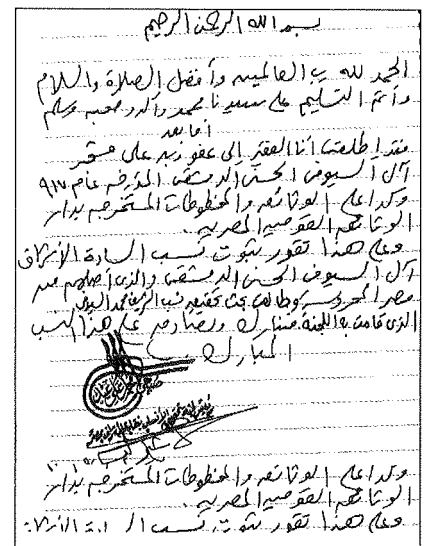 بسم الله الرحمن الرحيم
الحمد لله رب العالمين وأفضل الصلاة والسلام
وأتم التسليم على سيدنا محمد وآله وصحبه وسلم
أما بعد
فقد اطلعت أنا الفقير إلى عفو ربه على مشجر
آل السيوفي الحسني الدمشقي المؤرخه عام ٩١٧
وكذا على الوثائق والمخطوطات المستخرجه بدار
الوثائق القوميه المصريه.
وعلى هذا تقرر ثبوت نسب السادة الأشراف
آل السيوفي الحسني الدمشقي والذي أصلهم من
مصر المحروسة وطالعت بحث تحقيق نسب الشريف محمد
الذي قامت به اللجنة فنبارك ونصادق على هذا النسب
المبارك
وكذا على الوثائق والمخطوطات المستخرجه بدار
الوثائق القوميه المصريه.
وعلى هذا تقرر ثبوت نسب